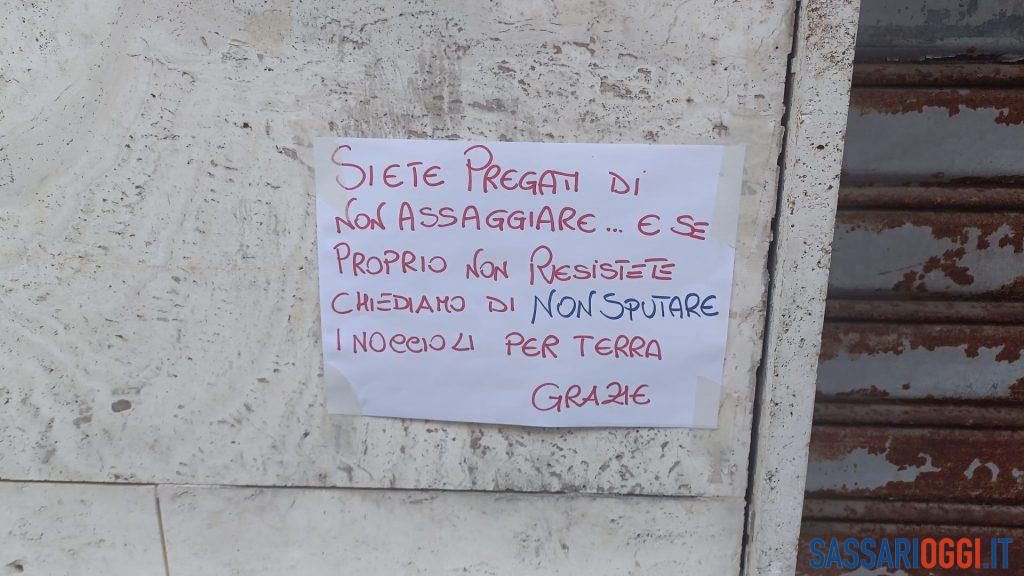 SIETE PREGATI DI
NON ASSAGGIARE... E SE
PROPRIO NON RIESISTETE
CHIEDIAMO DI NON SPUTARE
I NOCCIOLI PER TERRA
GRAZIE
SASSARIOGGI.IT